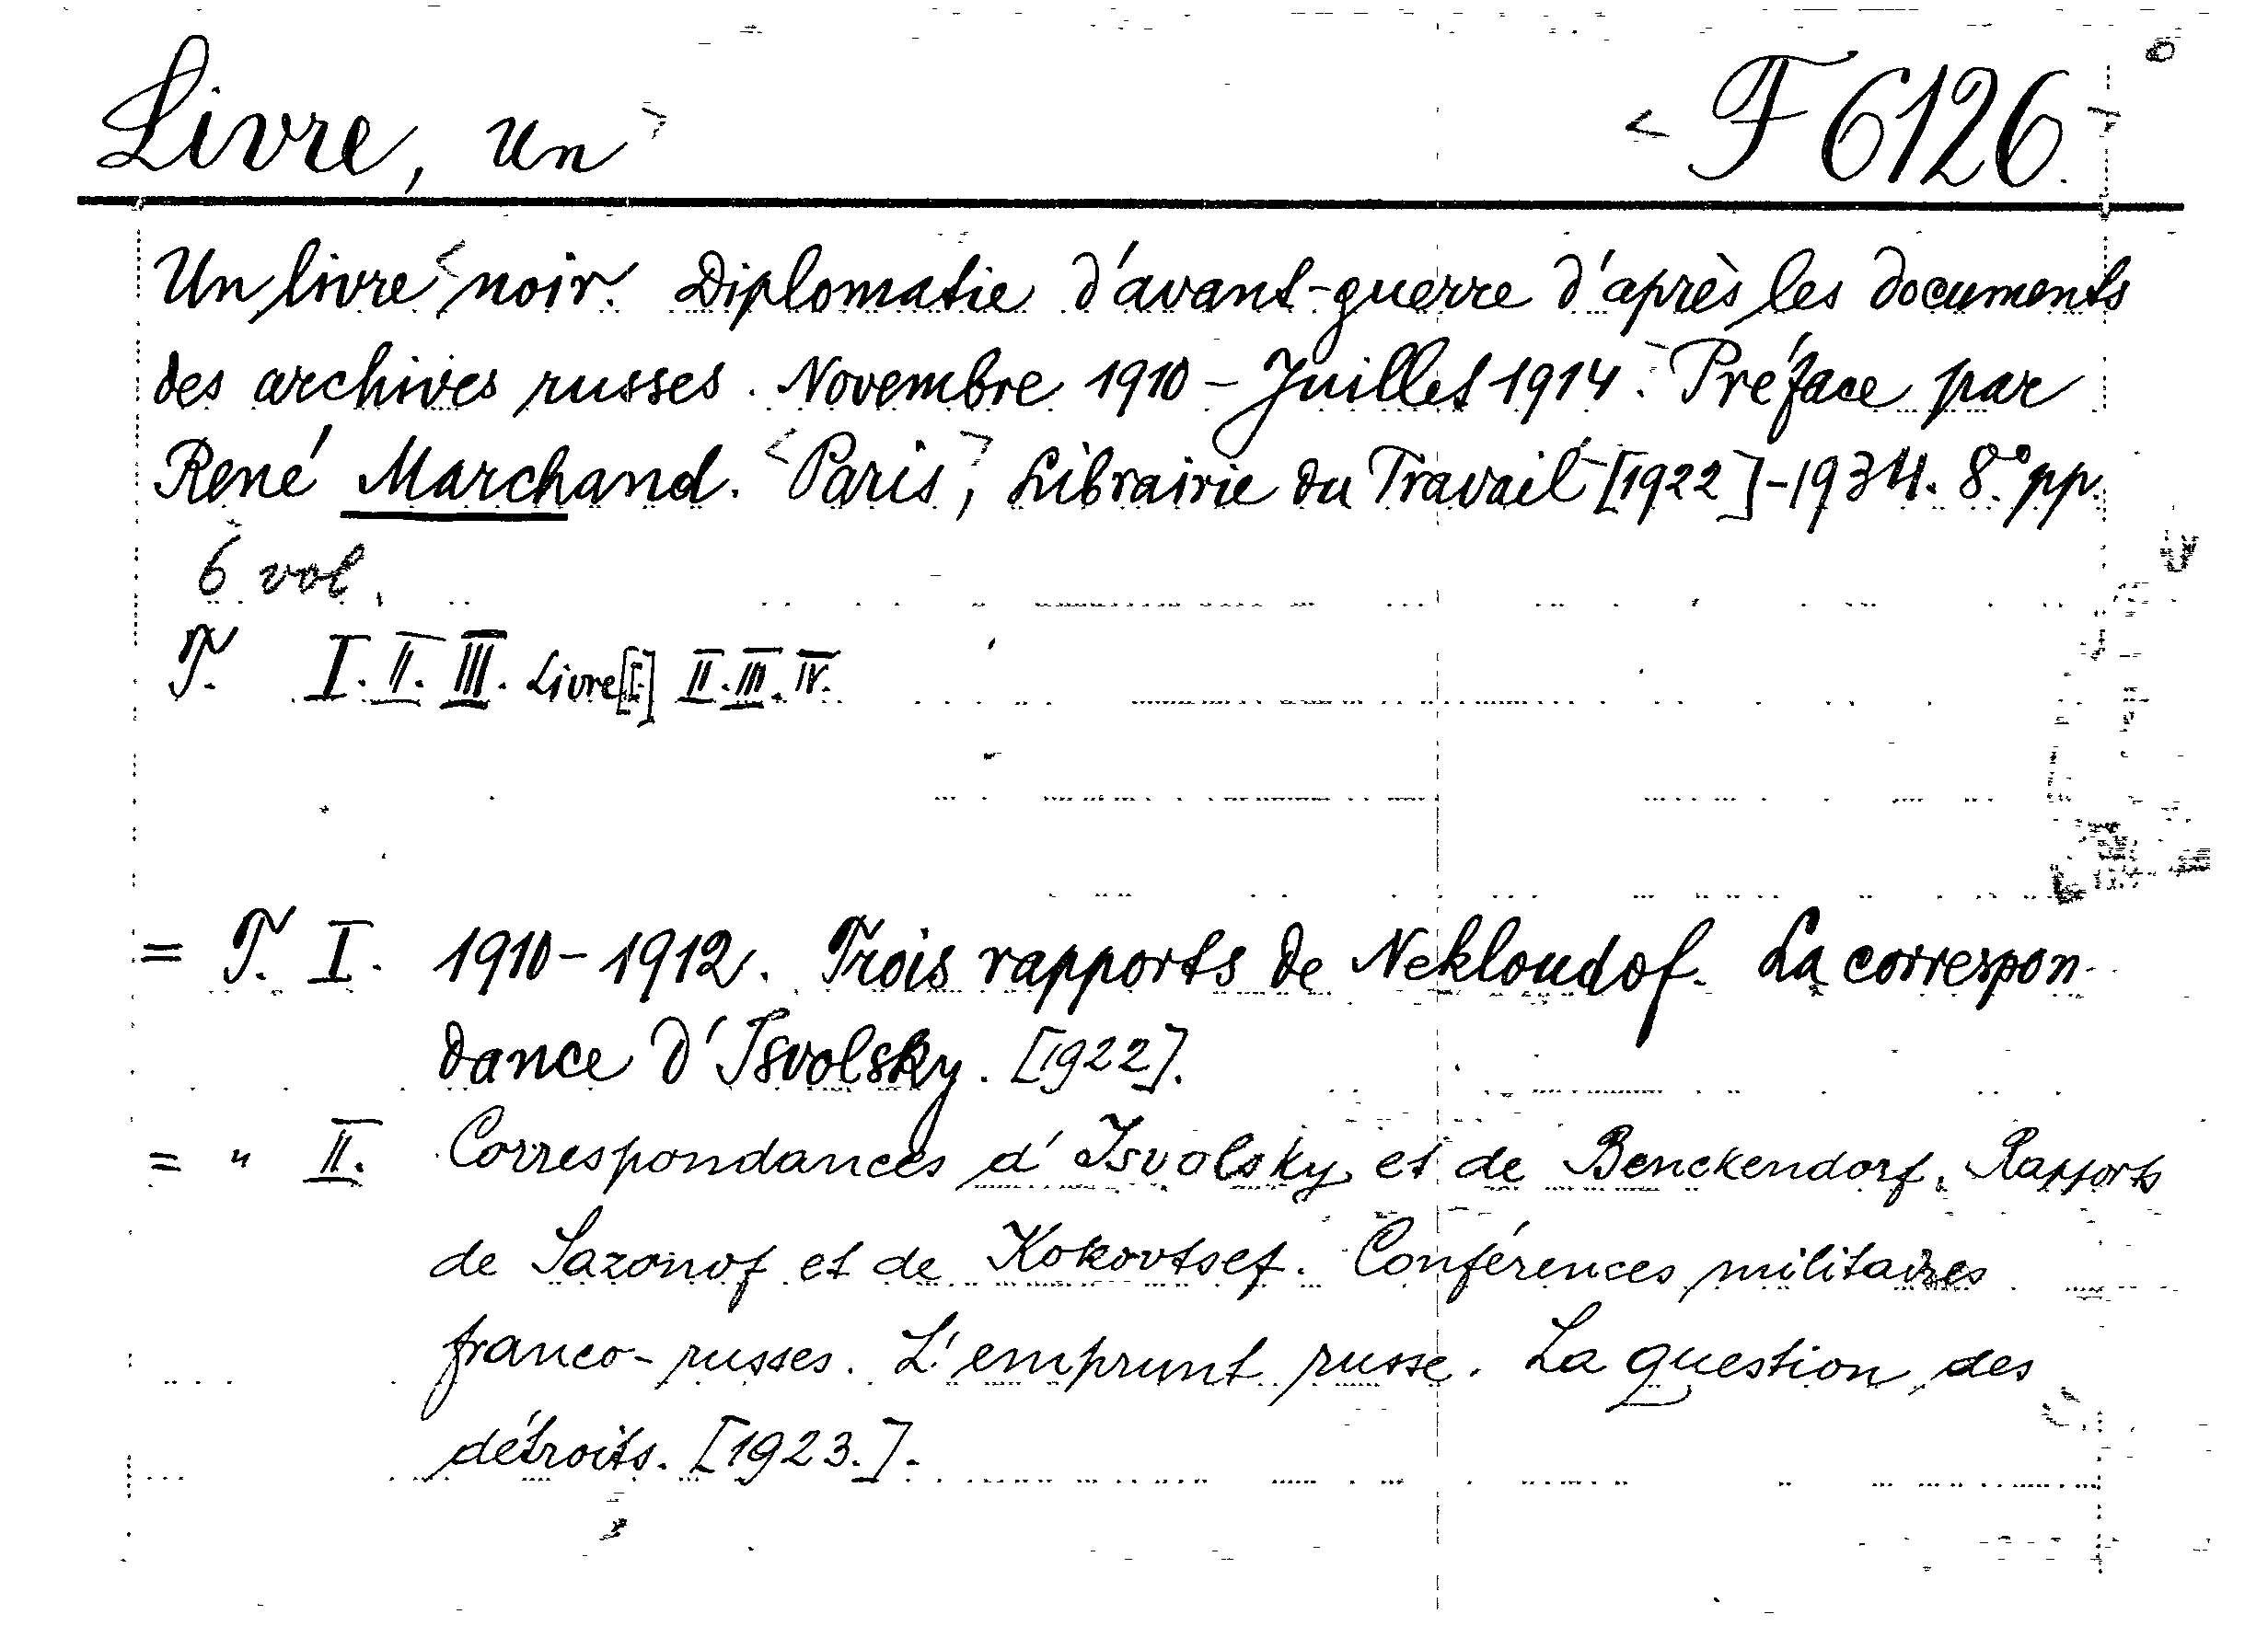 Livre, un F 6126.
Un livre noir. Diplomatie d'avant-guerre d'après les documents
des archives russes. Novembre 1910 - Juillet 1914. Préface par
René Marchand. Paris, Librairie du Travail [1922]-1934. 8° pp.
6 vol.
T. I. II. III. Livre [I.] II. III. IV.
= T. I. 1910-1912. Trois rapports de Nekloudof. La correspon-
dance d'Isvolsky. [1922].
= " II. Correspondances d'Isvolsky et de Benckendorf. Rapports
de Sazonof et de Kokovtsef. Conférences militaires
franco-russes. L'emprunt russe. La question des
détroits. [1923.].